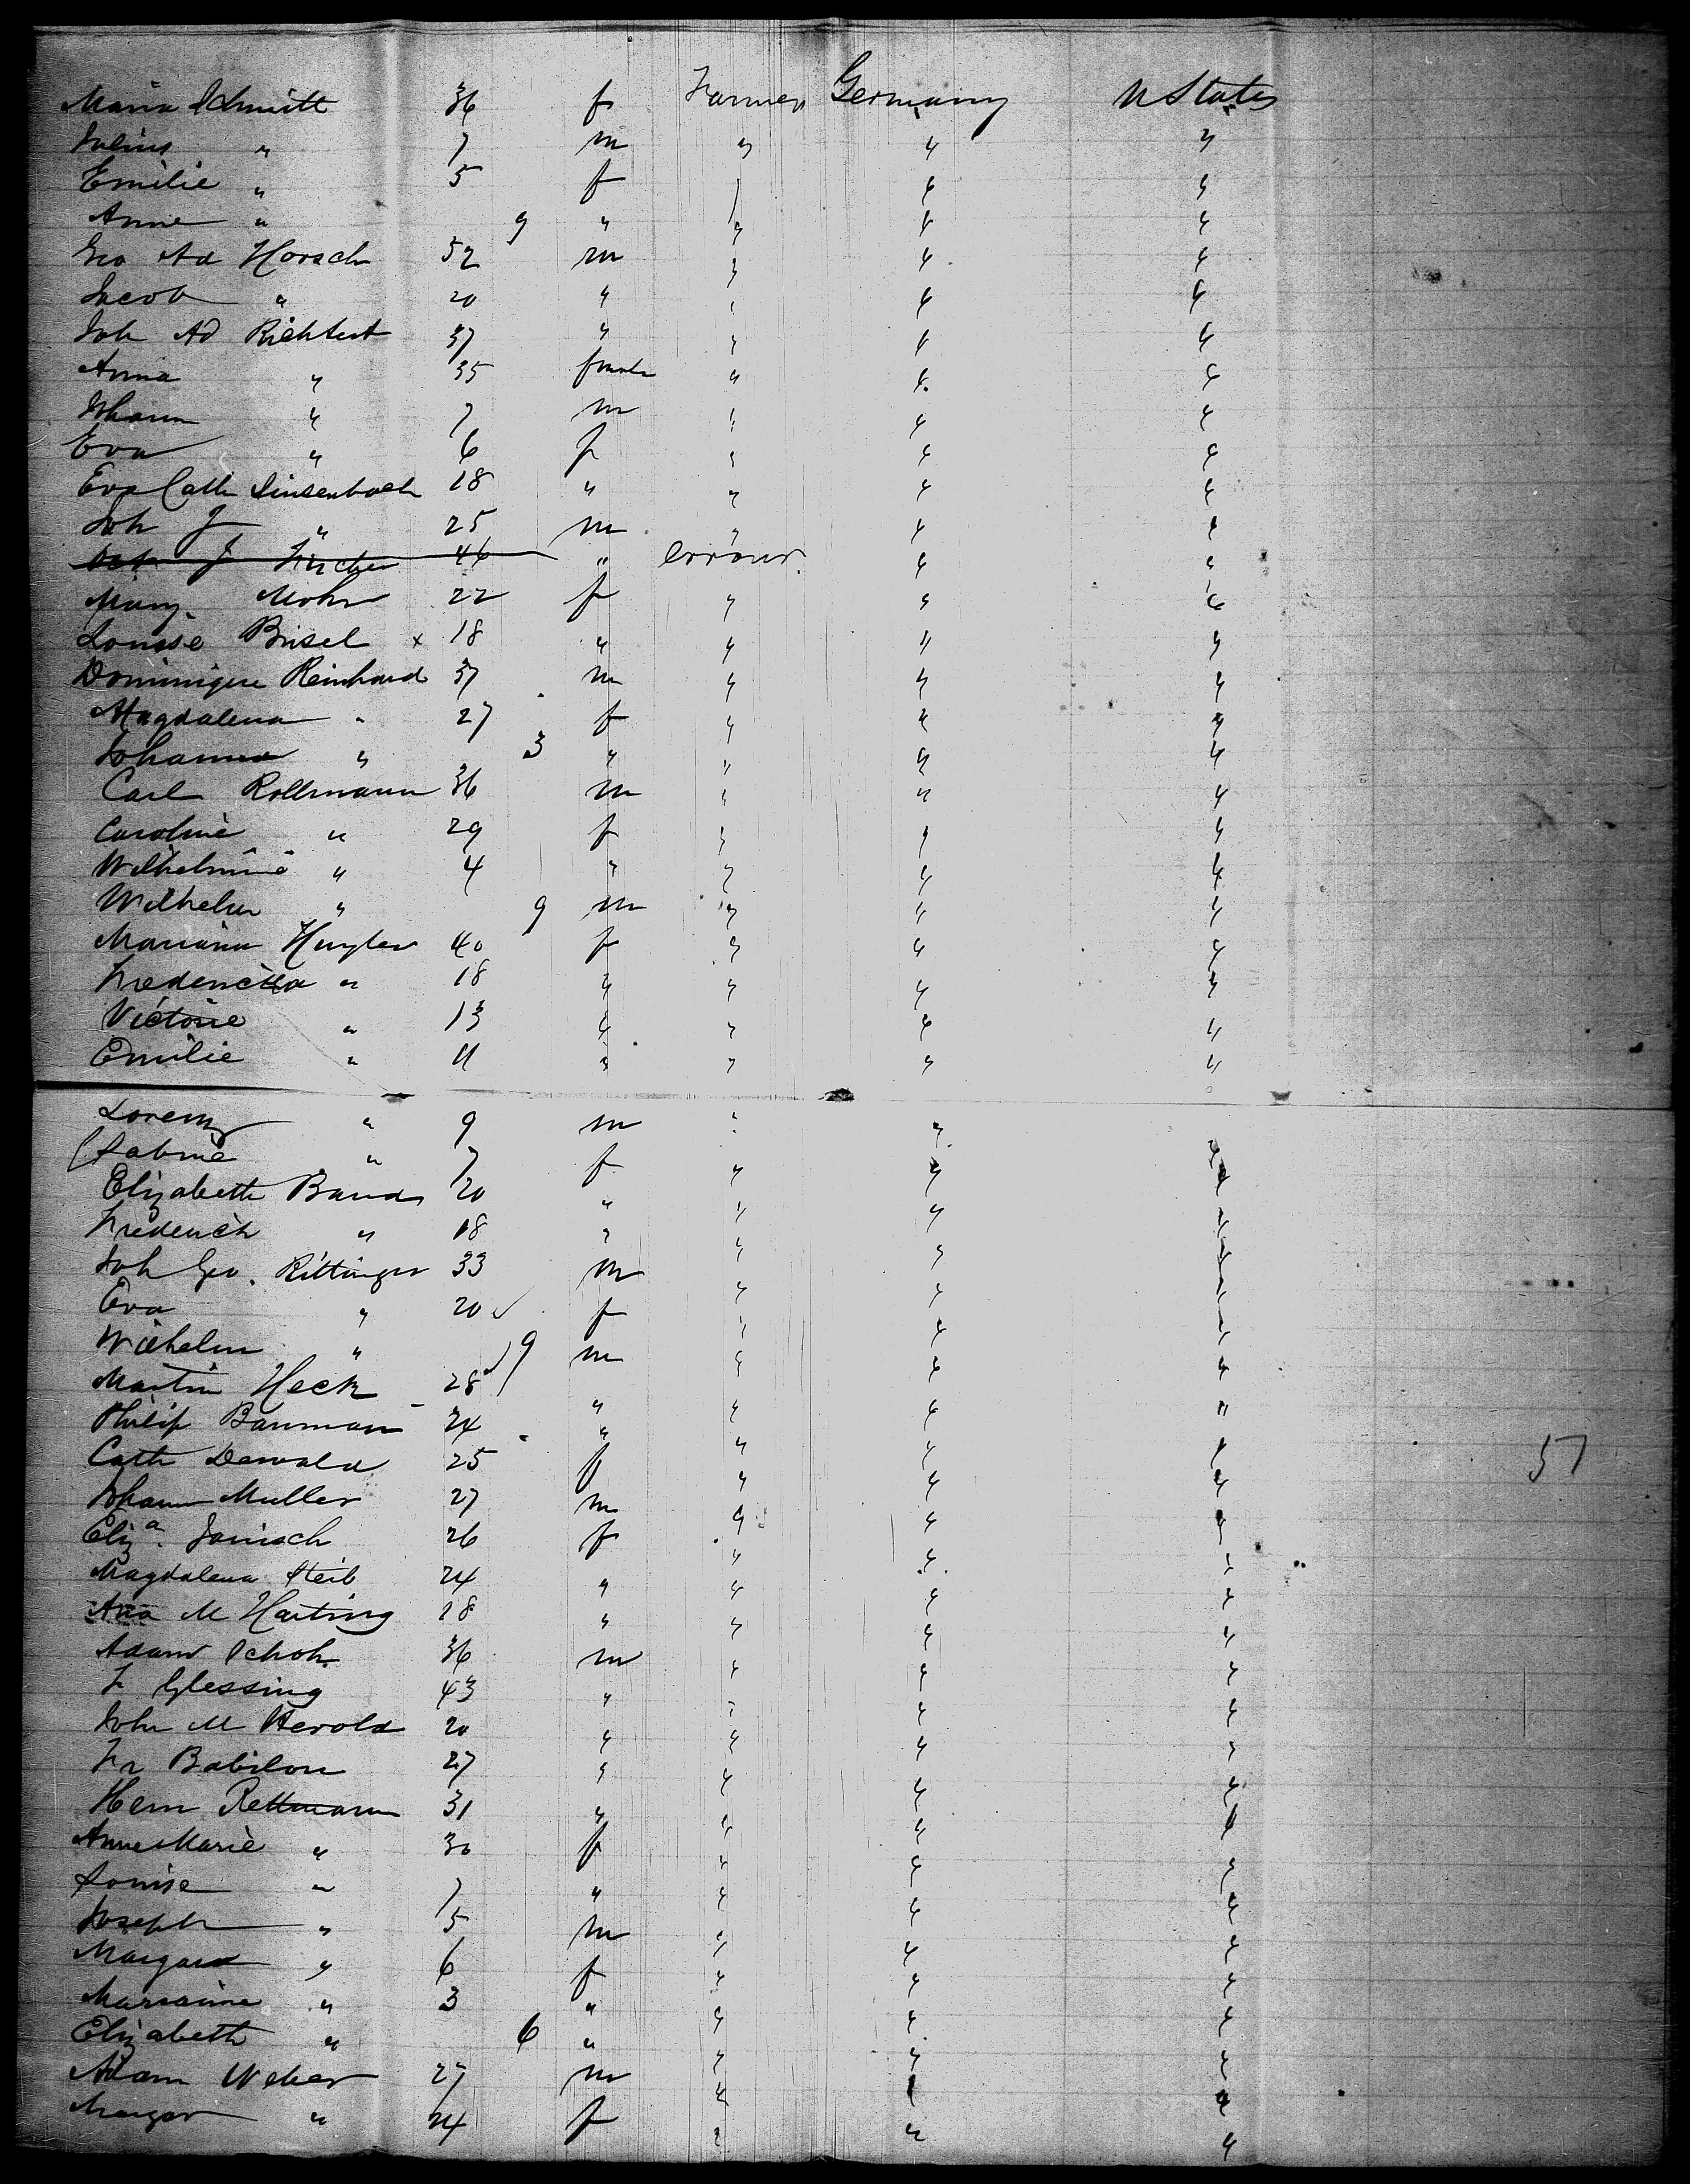 Maria Schmitt 36 f Farmer Germany U States
Julius " 7 m " " "
Emilie " 5 f " " "
Anne " 9 " " " "
Geo Ad Horsch 52 m " " "
Jacob " 20 " " " "
Joh Ad 37 " " " "
Anna " 35 female " " "
Johann " 7 m " " "
Eva " 6 f " " "
Eva Cath Linsenbach 18 " " " "
Joh J " 25 m " " "
J 46 " errour. " "
Marg. Mohr 22 f " " "
Louise Brisel x 18 " " " "
Dominique Reinhard 37 m " " "
Magdalena " 27 f " " "
Johanna " 3 " " " "
Carl Rollmann 36 m " " "
Caroline " 29 f " " "
Wilhelmine " 4 " " " "
Wilhelm " 9 m " " "
Mariana 40 f " " "
" 18 " " " "
Victorie " 13 " " " "
Emilie " 11 " " " "
Lorenz " 9 m " " "
Sabine " 7 f " " "
Elizabeth 20 " " " "
Frederich " 18 " " " "
Joh Geo. Rittinger 33 m " " "
Eva " 20 ✓ f " " "
Wilhelm " 9 m " " "
Martin Heck 28 " " " "
Philip Baumann 24 " " " "
Cath Dewald 25 f " " " 57
Johann Muller 27 m " " "
Eliza. Janisch 26 f " " "
Magdalena Steib 24 " " " "
Ana M Harting 18 " " " "
Adam Schoh 36 m " " "
F Glessing 43 " " " "
John M Herold 20 " " " "
Fr Babilon 27 " " " "
Hern Rettmann 31 " " " "
Anne Marie " 30 f " " "
Louise " 7 " " " "
Joseph " 5 m " " "
Margard " 6 f " " "
Marianne " 3 " " " "
Elizabeth " 6 " " " "
Adam Weber 27 m " " "
Margar " 24 f " " "